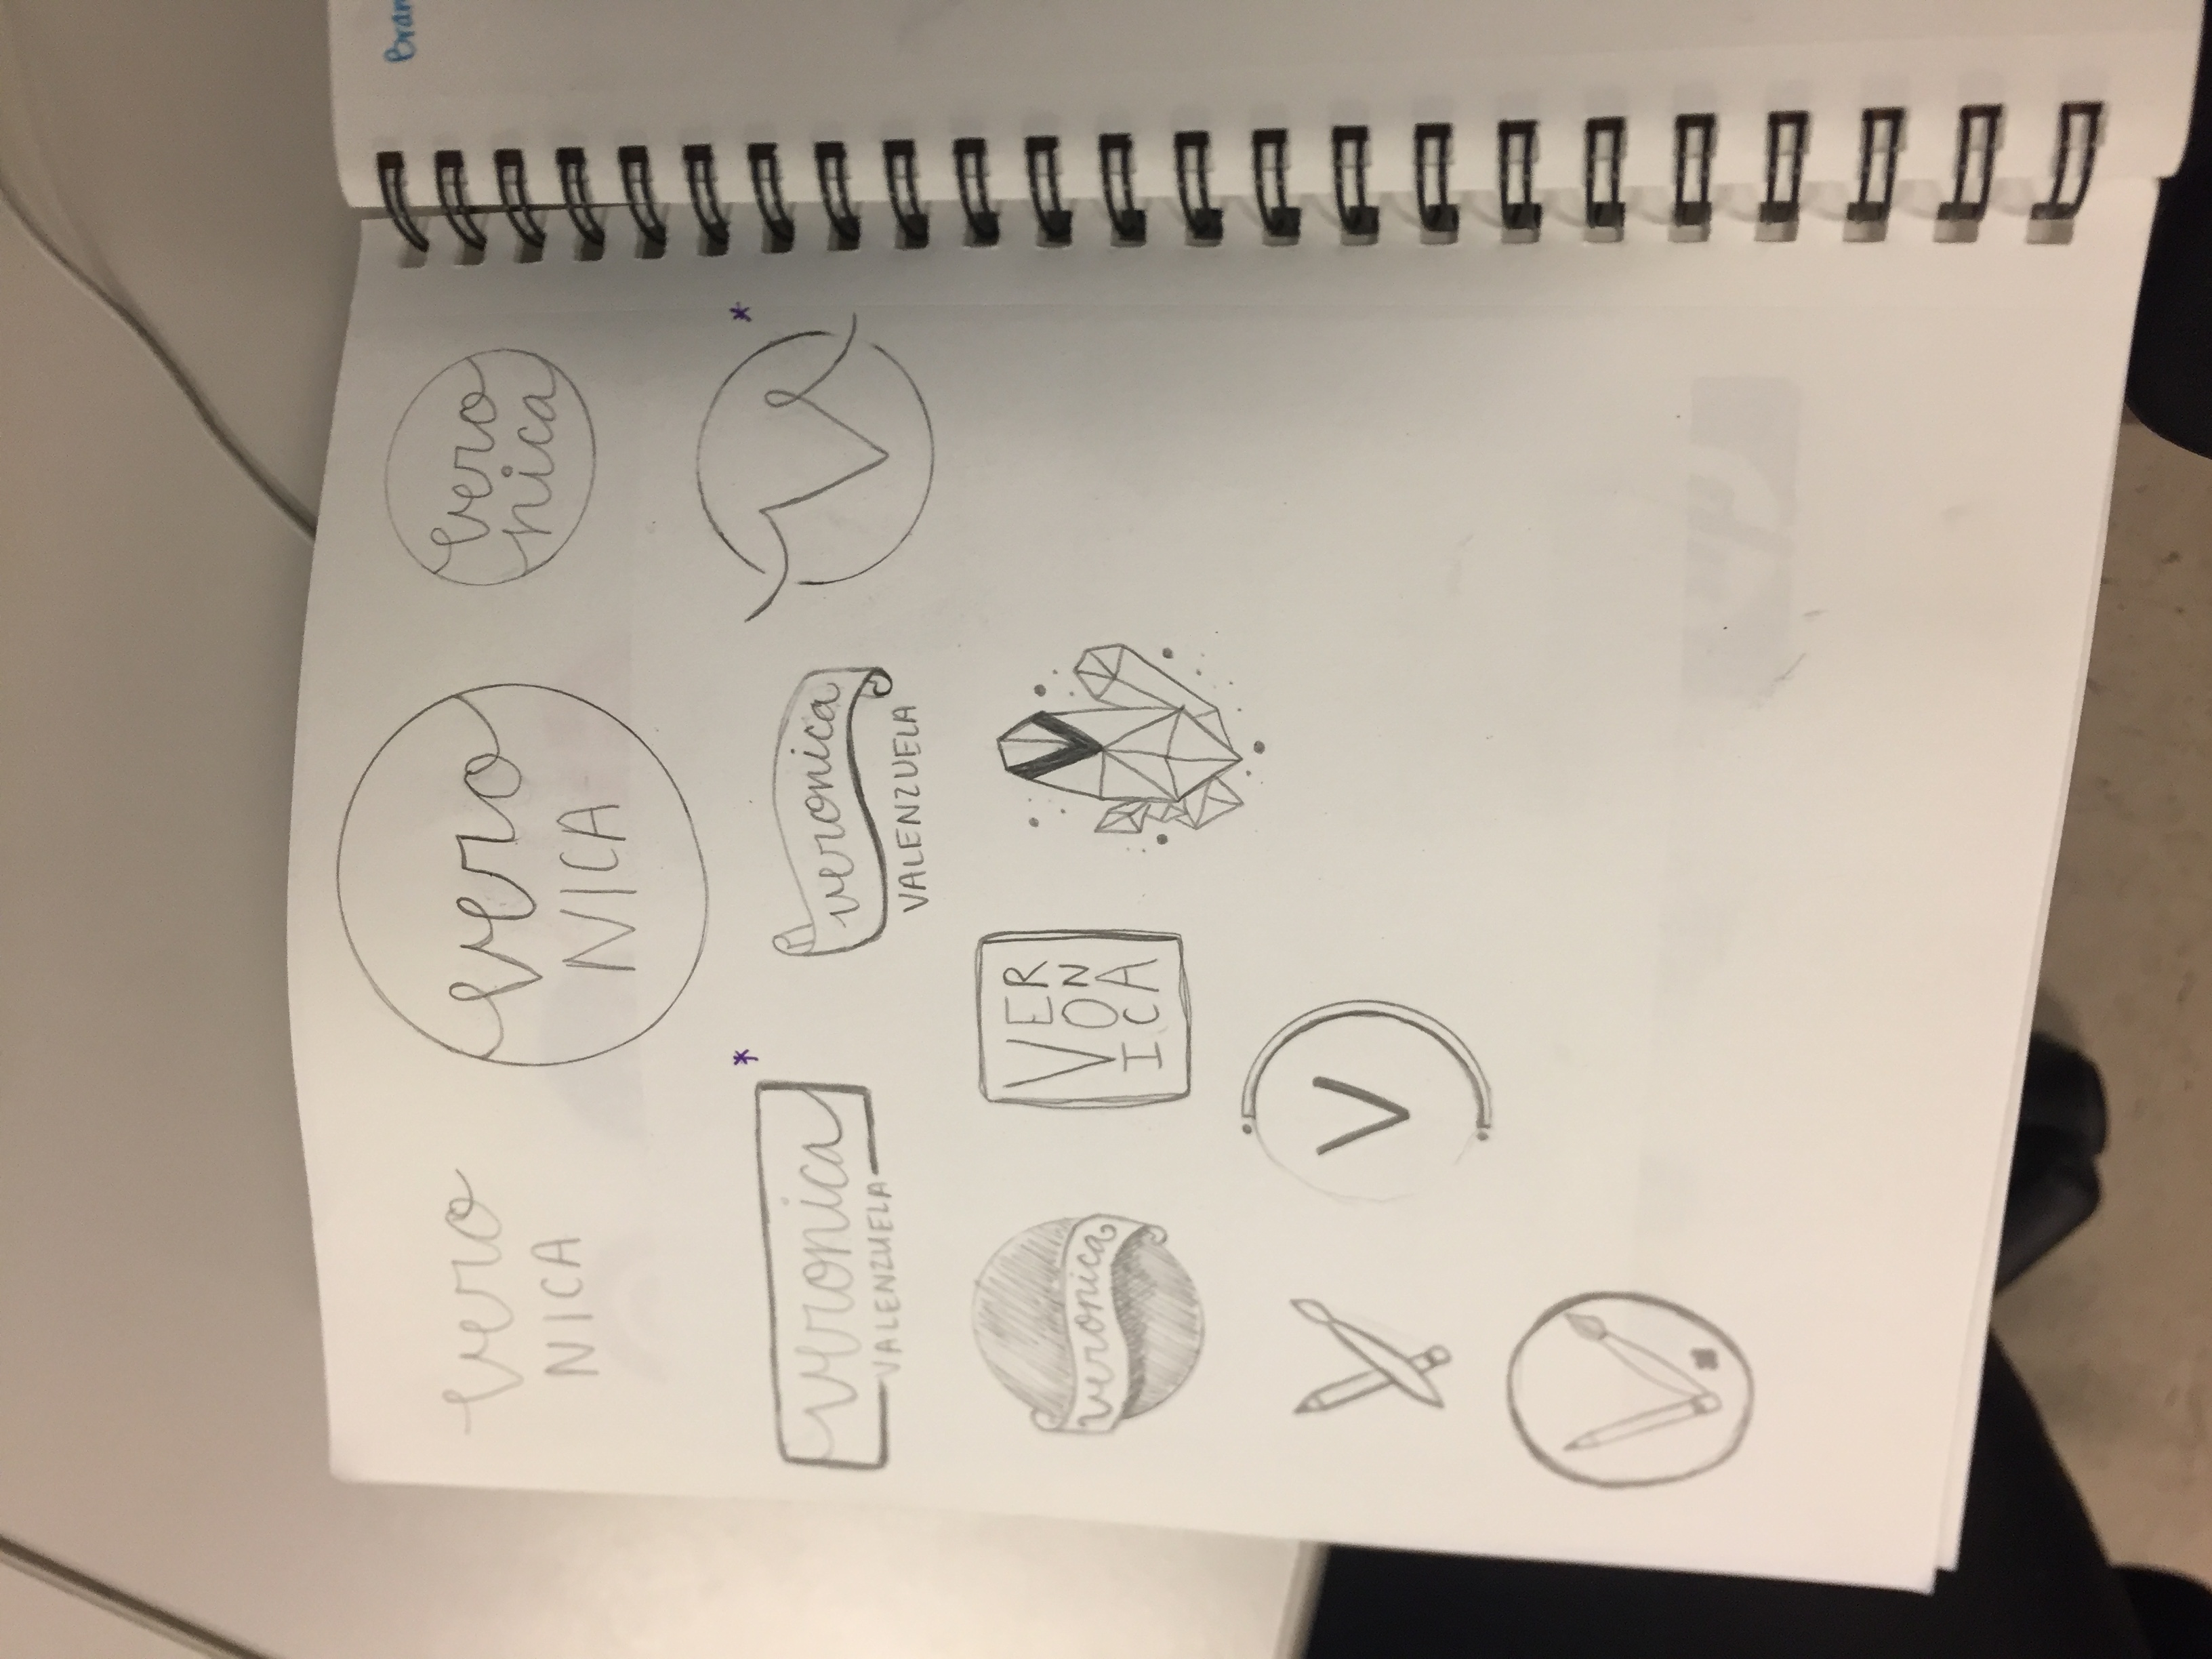 vero
NICA
vero
NICA
vero
nica
veronica
VALENZUELA
*
veronica
VALENZUELA
V
*
veronica
VER
ON
ICA
V
V